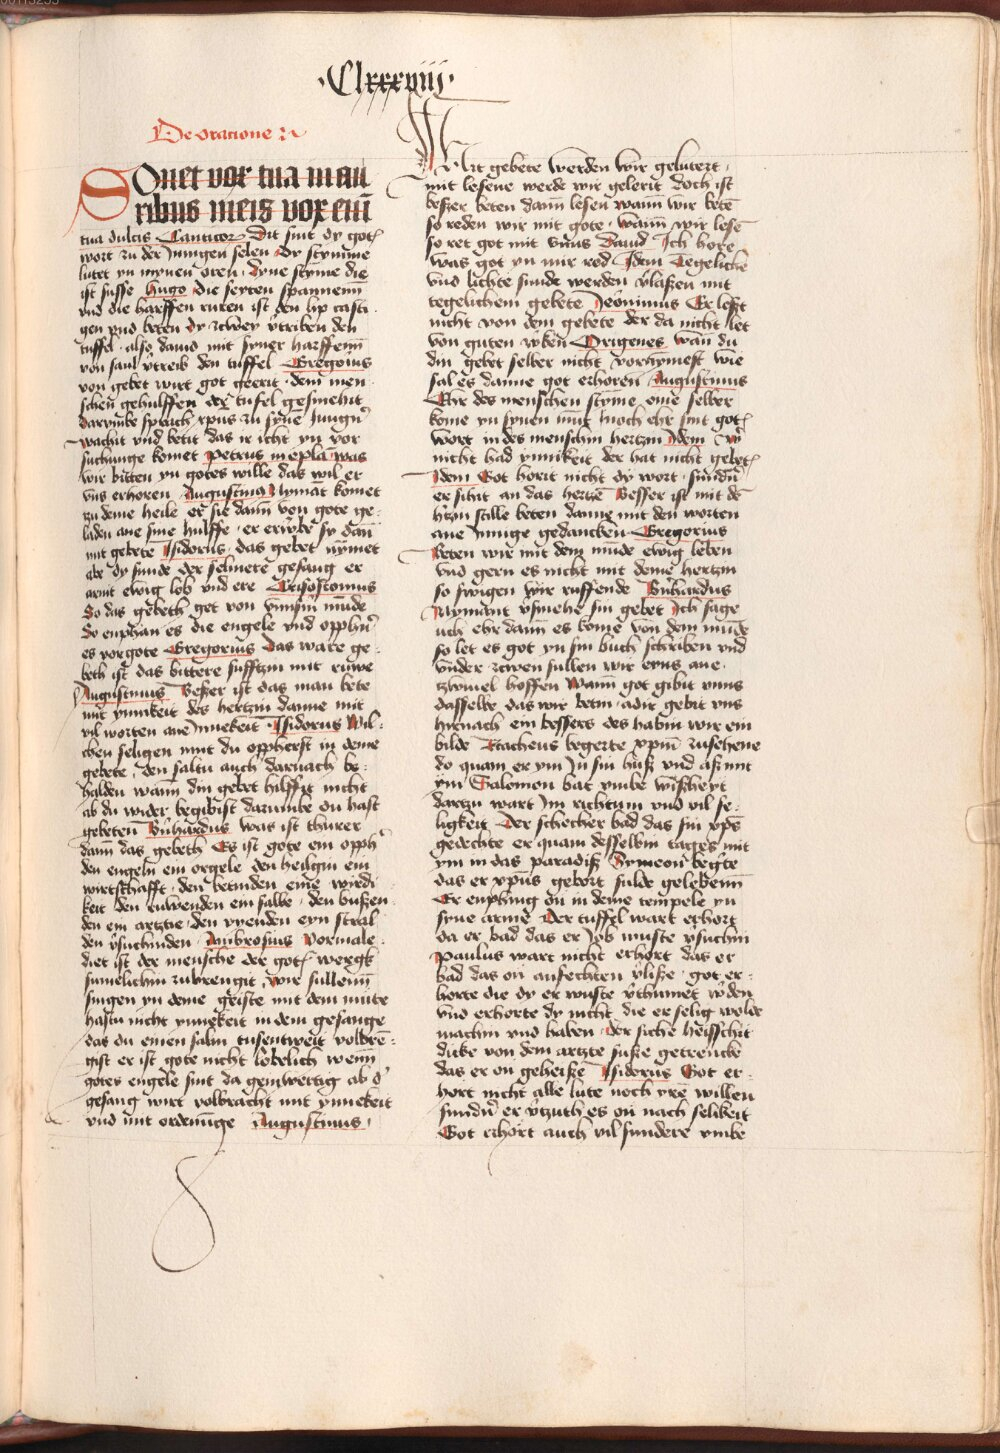 ·Clxxxviij·
De oratione
Sonet vox tua in au
ribus meis vox eim
tua dulcis Canticor Dit sint dy gotz
wort zu der Jnnigen selen dy stymme
lutet yn mynen oren · dyne styme die
ist susse Hugo die seyten spannenn
vnd die harffen ruren ist den lip casti
gen vnd beten dy zcwey v̓triben den
tuffel · also dauid mit syner harffenn
von saul v̓treib den tuffel Gregorius
von gebet wirt got geerit · dem men
schen gehulffen der tufel gesmehit
darvmbe sprach xpus zu syne Jungn̓
wachit vnd betit das ir icht yn vor
suchunge komet Petrus in epla was
wir bitten yn gotes wille das wil er
vns erhoren Augustinus Nymāt komet
zu deme heile er sie dann von gote ge
laden ane sine hulffe · er erw̓be sy dan
mit gebete Isidorus · das gebet nȳmet
abe dy sunde der selmere gesang er
arnit ewig lob vnd ere Crisostomus
So das gebeth get von vnnsm̄ mūde
So enphan es die engele vnd opphn̓
es vor gote Gregorius Das ware ge
beth ist das bittere sufftzin mit ruwe
Augustinus Besser ist das man bete
mit ynnikeit des hertzin danne mit
vil worten ane Jnnekeit · Isidorus Wil
chen seligen mut du oppherst in deme
gebete · den saltu auch darnach be
halden wann din gebet hilffit nicht
ab du wider begibist darumbe du hast
gebeten Bn̓hardus Was ist thurer
dann das gebeth Es ist gote ein opph̓
den engeln ein orgele den heilgin ein
wirtschafft · den betinden eine wirdi
keit den ruwenden ein salbe · den bussen
den ein arztie · den vyenden eyn stral
den v̓suchinden · Ambrosius Vormale
diet ist der mensche der gotz wergk
sumelichin zubrengit wir sullenn
singen yn deme geiste mit dem mute
hastu nicht ynnekeit in dem gesange
das du einen salm tusentweit volbre
gist er ist gote nicht lobelich wenn
gotes engele sint da geinwertig ab d̓
gesang wirt volbracht mit ynnekeit
vnd mit ordenūnge Augustinus ·
Mit gebete werden wir gelutert ·
mit lesene werde wir gelerit doch ist
besser beten dann lesen wann wir betē
so reden wir mit gote · wann wir lesē
so ret got mit vnns Dauid Ich hore
was got yn mir red Idem Tegeliche
vnd lichte sunde werden v̓lassen mit
tegelichem gebete Jeōnimus Er lesst
nicht von dem gebete der da nicht let
von guten w̓ken Origenes wan du
din gebet selber nicht vornymest wie
sal es danne got erhoren Augustinus
Ehr des menschen styme eme selber
kome yn synen mūt noch ehr sint gotz
wort in des menschin hertzin Idem W̓
nicht had ynnikeit der hat nicht gebetz
Idem Got horit nicht dy wort · sundn̓
er sihit an das hertze Besser ist mit dē
h̓tzin stille beten danne mit den worten
ane Jnnige gedancken Gregorius
Beten wir mit dem mūde ewig leben
vnd gern es nicht mit deme hertzin
so swigen wir ruffende Bn̓hardus
Nymant v̓smehe sin gebet Ich sage
uch ehr dann es kome von dem mūde
so let es got yn sin buch schriben vnd
vnder zcwen sullen wir eyns ane
tzwiuel hoffen wann got gibit vnns
dasselbe das wir betin · adir gebit vns
hirnach ein bessers des habin wir ein
bilde Zacheus begerte xpm̄ zusehene
do quam er ym Jn sin hūs vnd aß mit
ym Salomon bat vmbe wißheyt
dartzu wart Jm richtum vnd vil se
ligkeit Der schecher bad das sin xps̄
gedechte er quam desselbin tages mit
ym in das paradiß Symeon begte
das er xpūs geb̓ort sulde gelebenn
Er enphing on in deme tempele yn
syne armē Der tuffel wart erhort
da er bad das er Job muste v̓suchin
Paulus wart nicht erhort das er
bad das on anfechten v̓liße · got er
horte die dy er wuste v̓thumet w̓den
vnd erhorte dy nicht die er selig wolde
machin vnd haben Der siche heisschit
dicke von dem arzte susse getrencke
das er on geheißē Isidorus Got er
hort nicht alle lute noch yrē willen
sundn̓ er v̓tzuth es on nach selikeit
Got erhort auch vil sundere vmbe